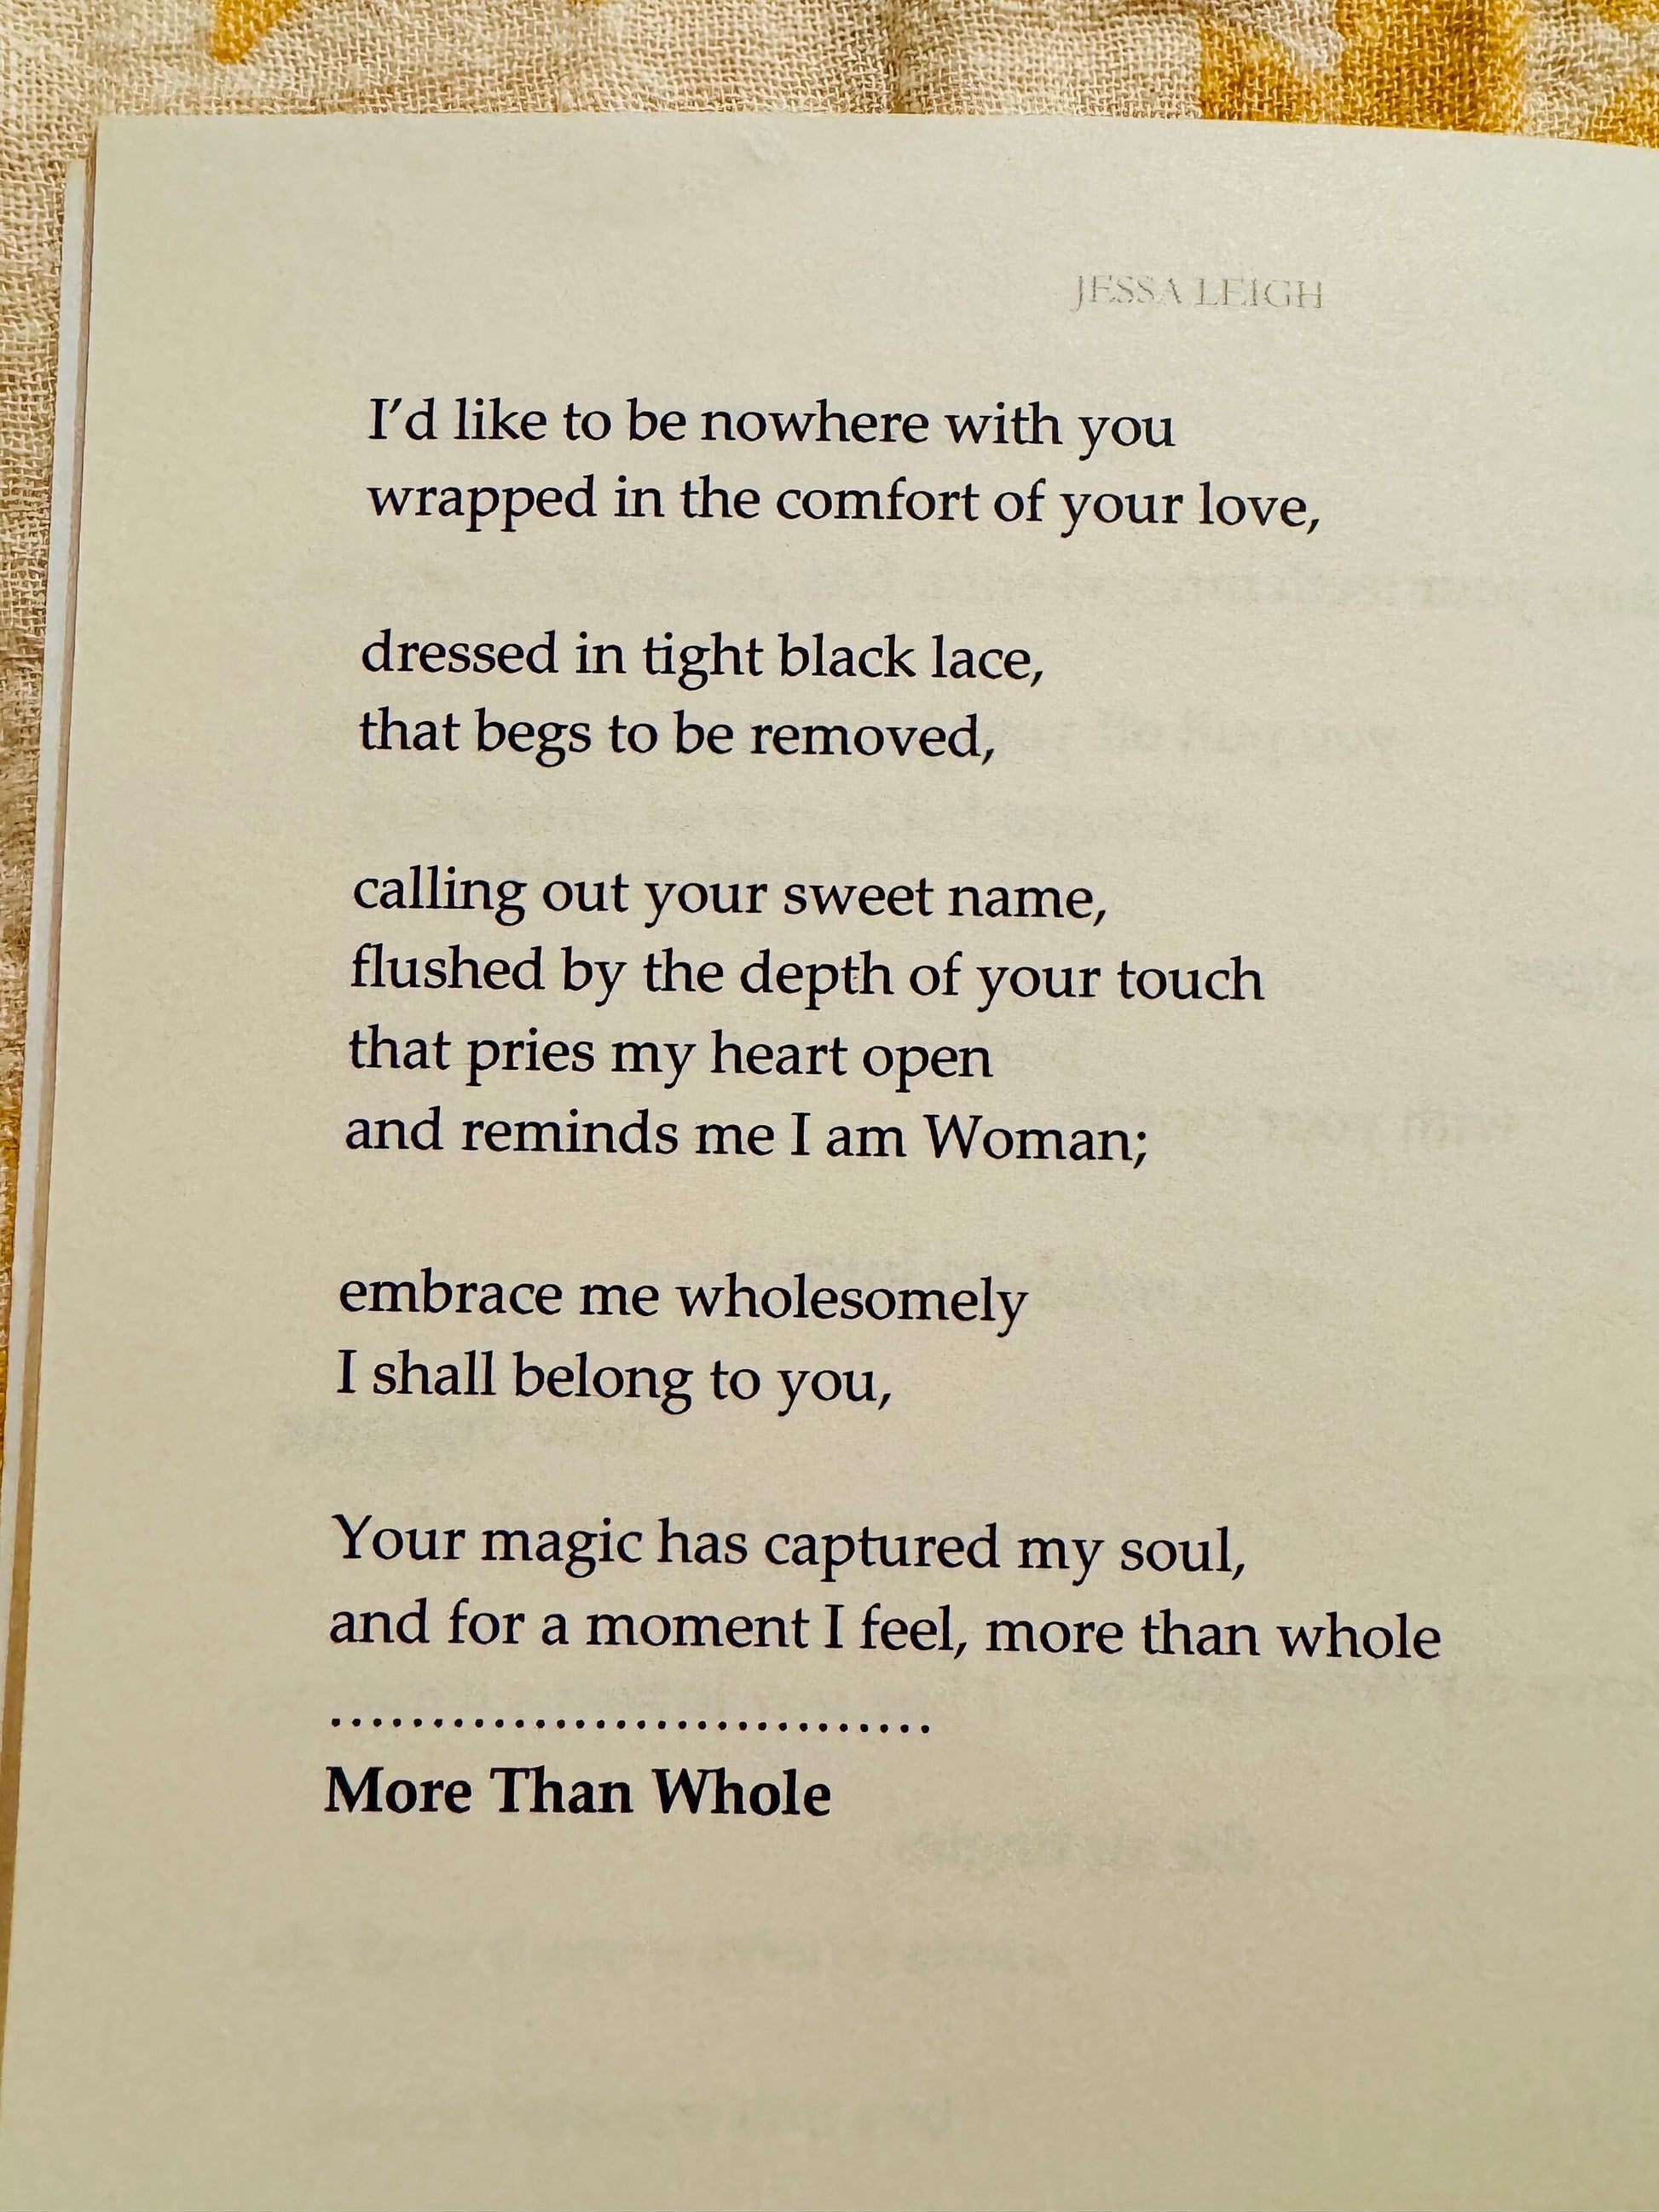 JESSA LEIGH
I’d like to be nowhere with you
wrapped in the comfort of your love,
dressed in tight black lace,
that begs to be removed,
calling out your sweet name,
flushed by the depth of your touch
that pries my heart open
and reminds me I am Woman;
embrace me wholesomely
I shall belong to you,
Your magic has captured my soul,
and for a moment I feel, more than whole
..............................
More Than Whole